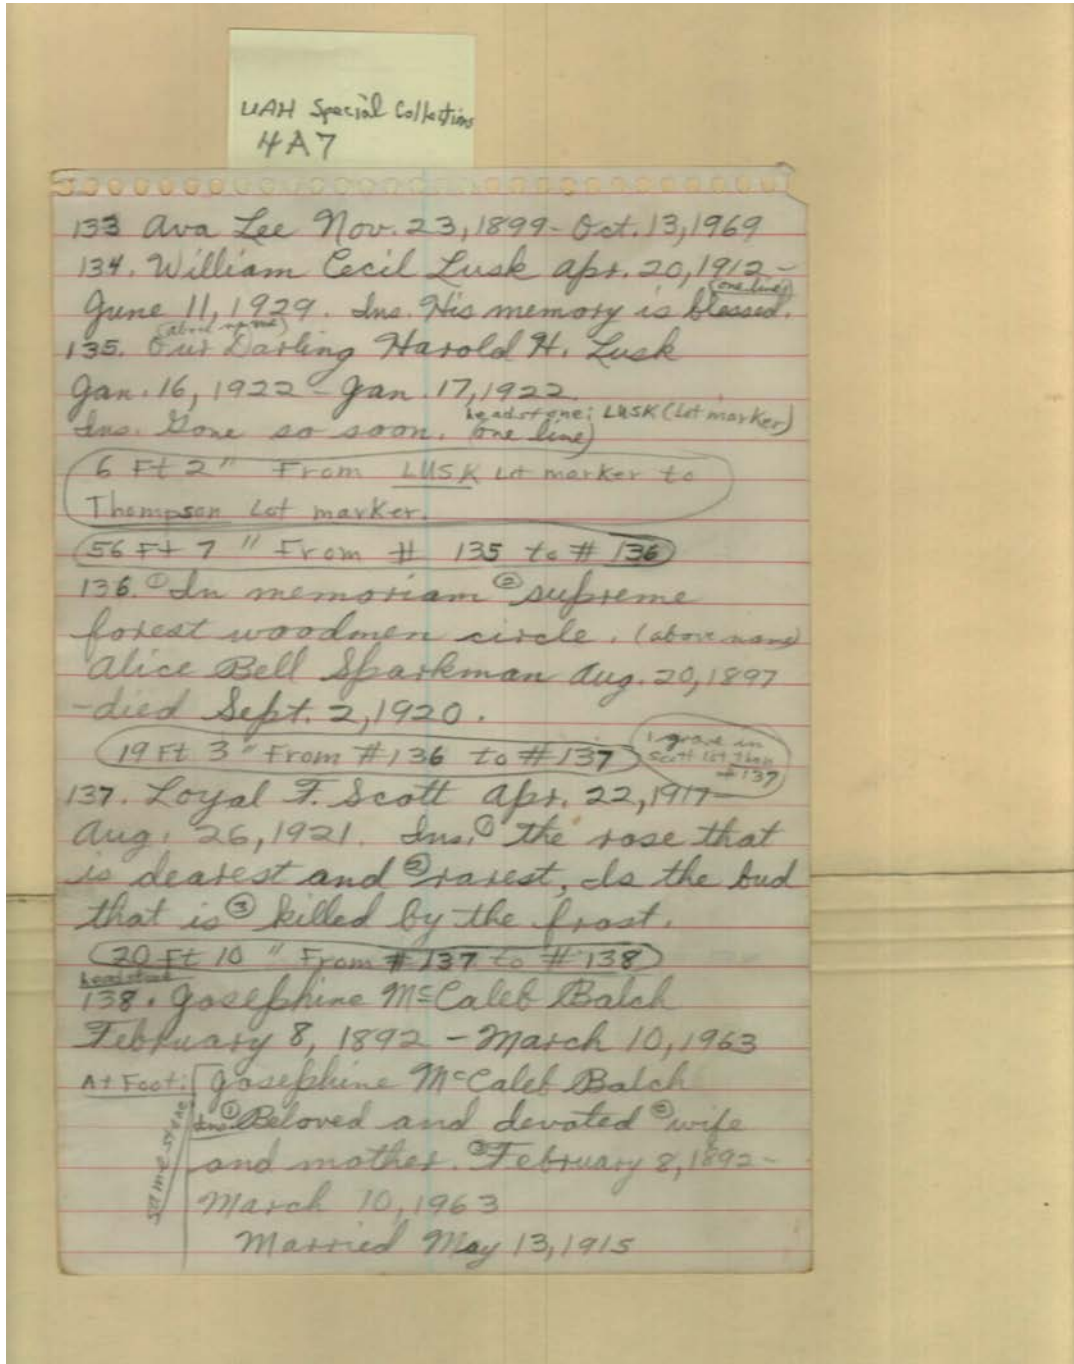 UAH Special Collections
4A7
133 Ava Lee Nov. 23, 1899 - Oct. 13, 1969
134. William Cecil Lusk Apr. 20, 1912 -
(one line)
June 11, 1929. Ins. His memory is blessed.
(above name)
135. Our Darling Harold H. Lusk
Jan. 16, 1922 - Jan. 17, 1922
headstone: LUSK (Lot marker)
Ins. Gone so soon. (one line)
6 Ft 2" From LUSK Lot marker to
Thompson Lot marker.
56 Ft 7" From # 135 to # 136
136. ① In memoriam ② supreme
forest woodmen circle. (above name)
Alice Bell Sparkman Aug. 20, 1897
- died Sept. 2, 1920.
19 Ft 3" From # 136 to # 137
1 grave in
Scott lot then
# 137
137. Loyal F. Scott Apr. 22, 1917 -
Aug. 26, 1921. Ins. ① the rose that
is dearest and ② rarest, Is the bud
that is ③ killed by the frost.
20 Ft 10" From # 137 to # 138
headstone
138. Josephine McCaleb Balch
February 8, 1892 - March 10, 1963
At Foot: Josephine McCaleb Balch
Ins. ① Beloved and devoted ② wife
and mother. ③ February 8, 1892 -
March 10, 1963
Married May 13, 1915
same stone